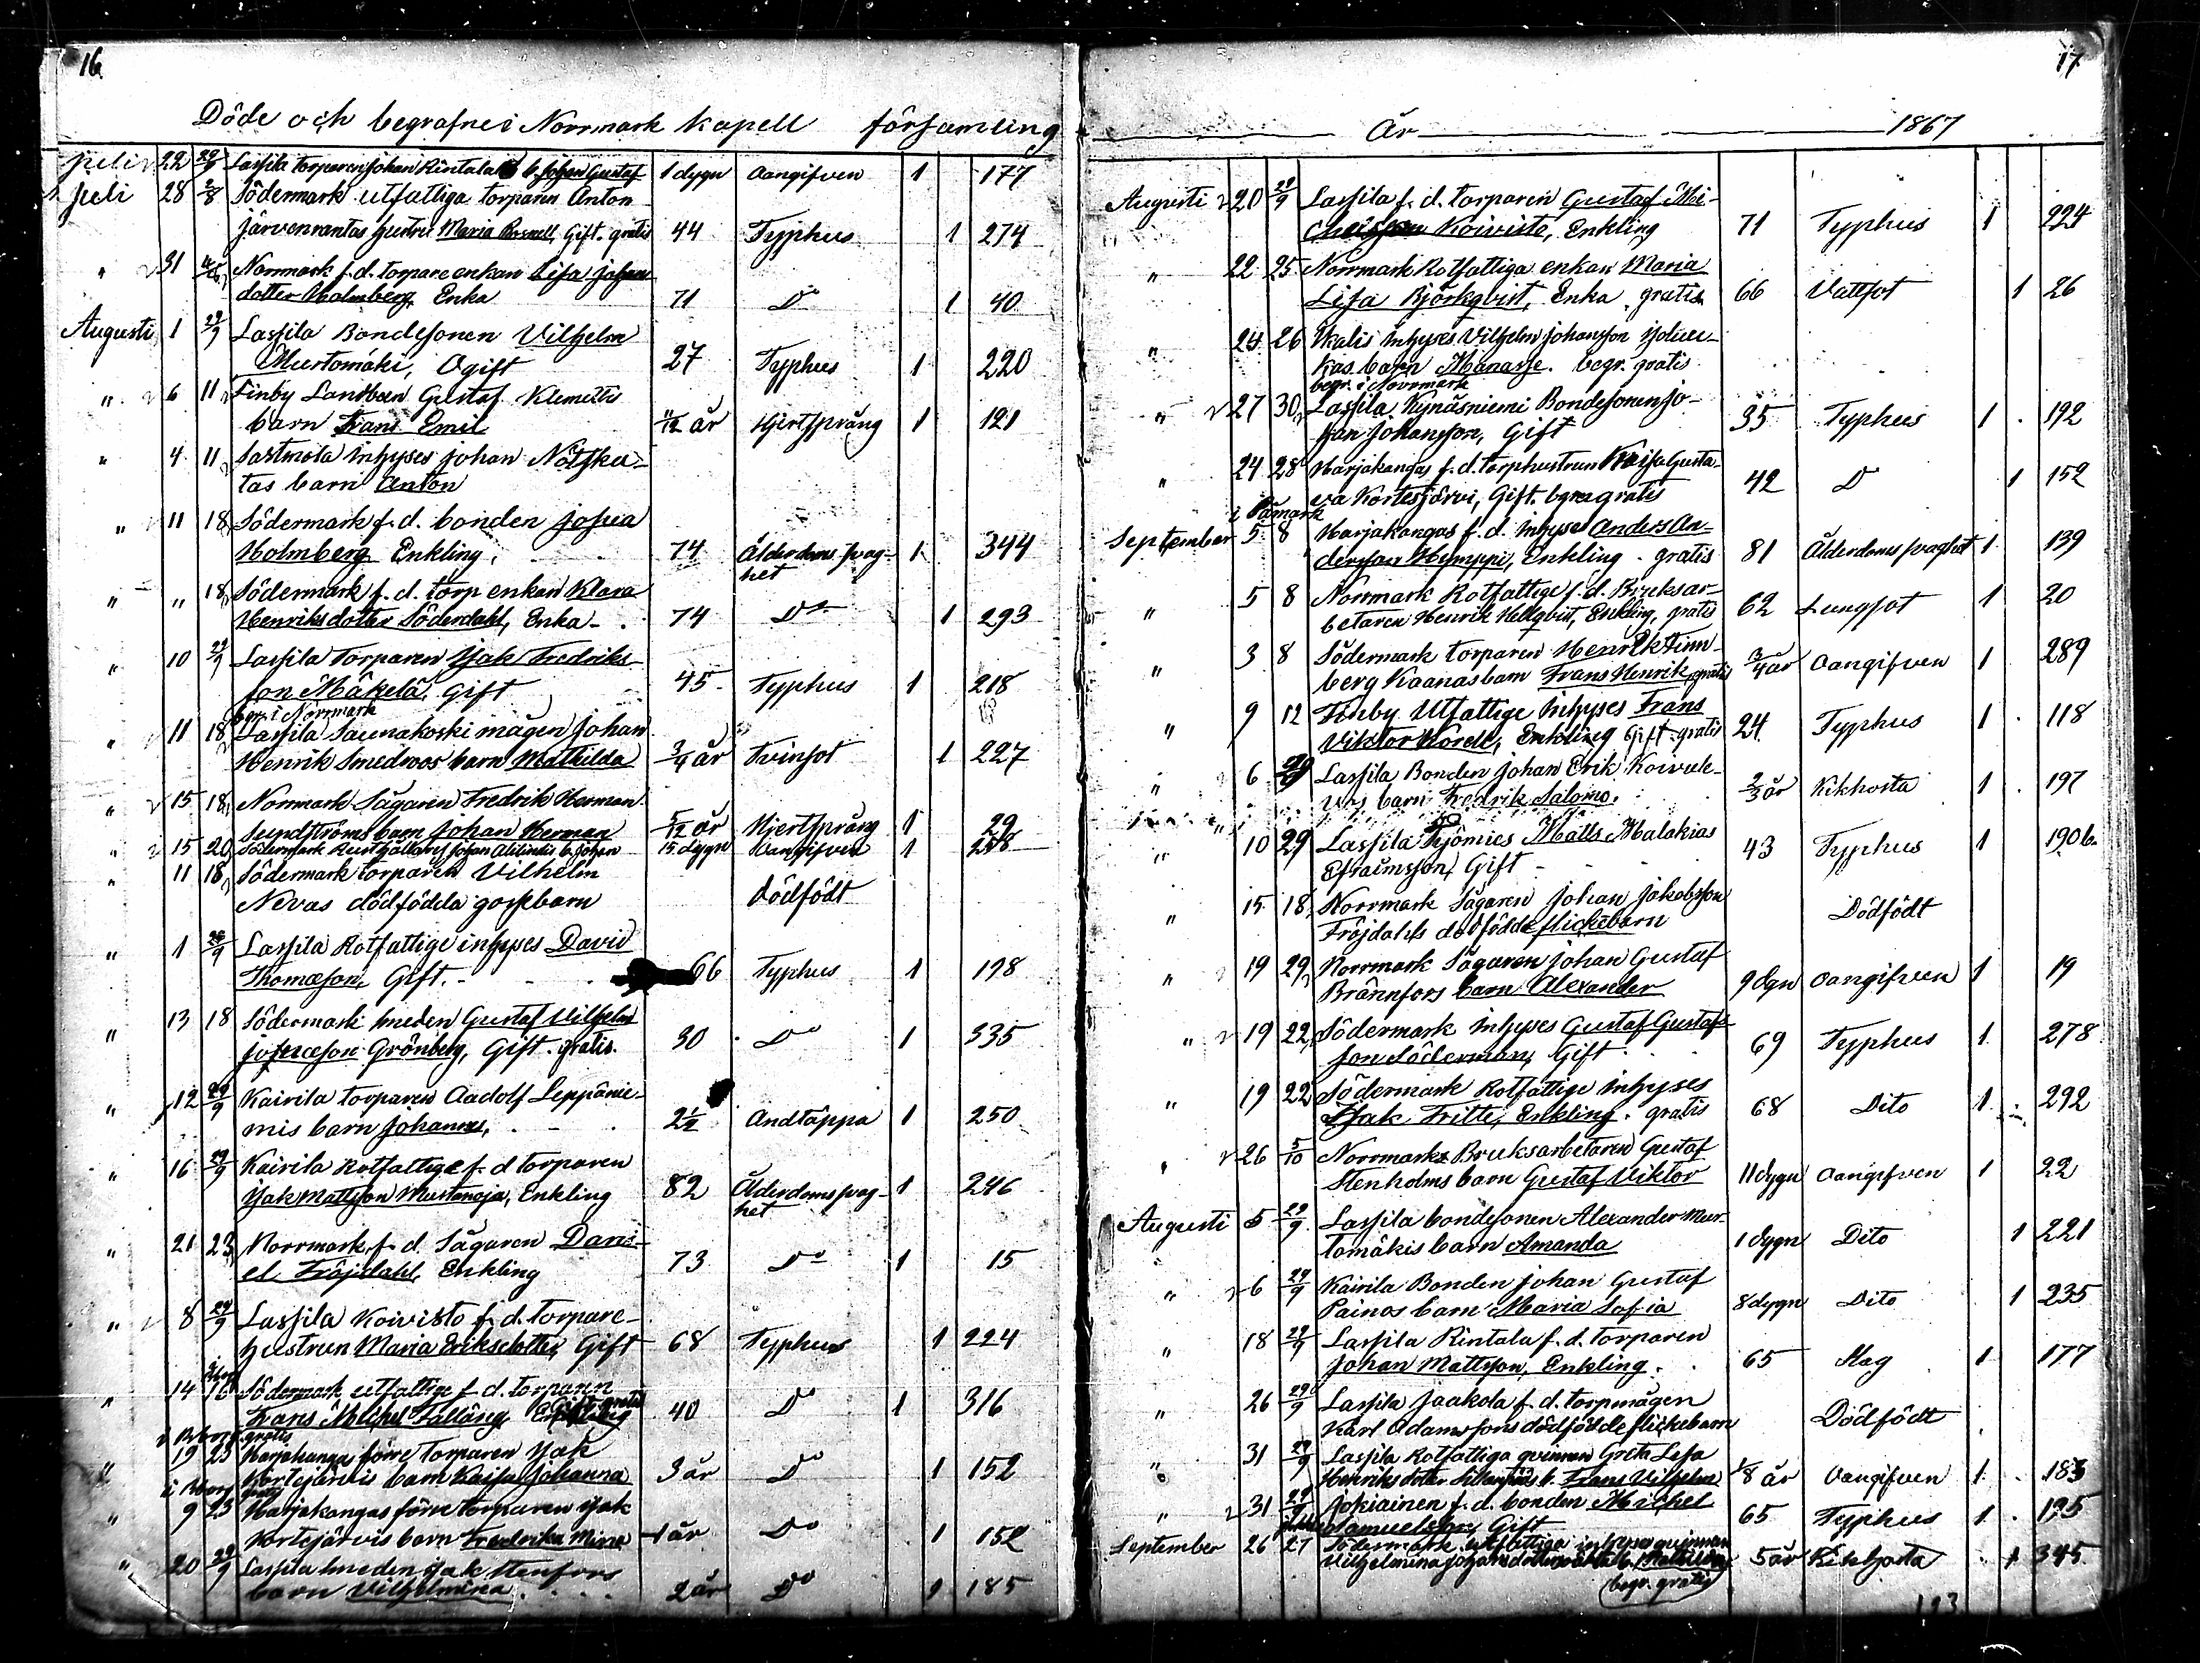 16
Döde och begrafne i Norrmark Kapell församling
Juli 22 29/9 Lassila torparen Johan Rintalas b. Johan Gustaf 1 dygn Oangifven 1 177
Juli 28 2/8 Södermark utfattiga torparen Anton
Järvenrantas hustru Maria Gift. gratis 44 Typhus 1 274
" 31 Norrmark f. d. torpare enkan Lisa Johans
dotter Holmberg Enka 71 Do 1 40
Augusti 1 29/9 Lassila Bondesonen Vilhelm
Murtomäki, Ogift 27 Typhus 1 220
" 6 11 Finby Landbon Gustaf Klemettis
barn Frans Emil 4/12 år Hjertsprång 1 121
" 4 11 Sastmola inhyses Johan
tas barn Anton
" 11 18 Södermark f. d. bonden Josua
Holmberg Enkling. 74 Ålderdomssvag- 1 344
het
" " 18 Södermark f. d. torp enkan Klara
Henriksdotter Söderdahl, Enka 74 Do 1 293
" 10 29/9 Lassila Torparen Isak Fredriks-
son Mäkelä, Gift 45 Typhus 1 218
begr. i Norrmark
" 11 18 Lassila Saunakoski mågen Johan
Henrik Smedroos barn Mathilda 3/4 år Tvinsot 1 227
" 15 18 Norrmark Sågaren Fredrik Herman
Sundströms barn Johan Herman 5/12 år Hjertsprång 1 29
" 15 20 Södermark Johan b. Johan 15 dygn Oangifven 1
" 11 18 Södermark torparen Vilhelm
Nevas dödfödda gossebarn Dödfödt
" 1 29/9 Lassila Rotfattige inhyses David
Thomasson, Gift. 66 Typhus 1 198
" 13 18 Södermark smeden Gustaf Vilhelm
Josuæson Grönberg, Gift. gratis. 30 Do 1 335
" 12 29/9 Kairila torparen Aadolf Leppänie-
mis barn Johannes, 2 1/2 Andtäppa 1 250
" 16 29/9 Kairila Rotfattige f. d. torparen
Isak Mattsson Mustanoja, Enkling 82 Ålderdomssvag- 1 246
het
" 21 23 Norrmark, f. d. Sågaren Dani-
el Fröjdahl, Enkling 73 Do 1 15
" 8 29/9 Lassila Koivisto f. d. torpare-
hustrun Maria Eriksdotter, Gift 68 Typhus 1 224
" 14 16 Södermark utfattige f. d. torparen
Frans Michel Falläng, gratis 40 Do 1 316
gratis
" 19 23 Harjakangas förre Torparen Isak
Kortejärvis barn Kaisa Johanna 3 år Do 1 152
" 9 23 Harjakangas förre torparen Isak
Kortejärvis barn Fredrika Mina 1 år Do 1 152
" 20 29/9 Lassila smeden Isak Stenfors
barn Vilhelmina. 2 år Do 1 185
17
År 1867
Augusti 20 29/9 Lassila f. d. torparen Gustaf Mi-
Koivisto, Enkling 71 Typhus 1 224
" 22 25 Norrmark Rotfattiga enkan Maria
Lisa Björkqvist, Enka. gratis 66 Vattsot 1 26
" 24 26 Ulvis inhyses Vilhelm Johansson
kas barn Manasse. begr. gratis
begr. i Norrmark
" 27 30 Lassila Kynäsniemi Bondesonen Jo-
han Johansson, Gift 35 Typhus 1 192
" 24 28 Harjakangas f. d. torphustrun Kaisa Gusta-
va Kortesjärvi, Gift. gratis 42 D 1 152
i Påmark
September 5 8 Harjakangas f. d. inhyses Anders An-
dersson Humppi, Enkling. gratis 81 Ålderdomssvaghet 1 139
" 5 8 Norrmark Rotfattige f. d. Bruksar-
betaren Henrik Hellqvist, Enkling, gratis 62 Lungsot 1 20
" 3 8 Södermark torparen Henrik Finn-
berg Kaanas barn Frans Henrik, gratis 3/4 år Oangifven 1 289
" 9 12 Finby Utfattige Inhyses Frans
Viktor Norell, Enkling Gift. gratis 24 Typhus 1 118
" 6 29/9 Lassila Bonden Johan Erik Koivule-
vis barn Fredrik Salomo. 2/3 år Kikhosta 1 197
" 10 29 Lassila Matts Malakias
Efraimsson, Gift 43 Typhus 1 190 b.
" 15 18 Norrmark Sågaren Johan Jakobsson
Fröjdahls dödfödde flickebarn Dödfödt
" 19 29 Norrmark Sågaren Johan Gustaf
Brännfors barn Alexander 9 dgn Oangifven 1 19
" 19 22 Södermark inhyses Gustaf Gustafs-
son Söderman, Gift 69 Typhus 1 278
" 19 22 Södermark Rotfattige inhyses
Isak Fritti, Enkling. gratis 68 Dito 1 292
" 26 5/10 Norrmarks Bruksarbetaren Gustaf
Stenholms barn Gustaf Viktor 11 dygn Oangifven 1 22
Augusti 5 29/9 Lassila bondesonen Alexander Mur-
tomäkis barn Amanda 1 dygn Dito 1 221
" 6 29/9 Kairila Bonden Johan Gustaf
Painos barn Maria Sofia 8 dygn Dito 1 235
" 18 29/9 Lassila Rintala f. d. torparen
Johan Mattsson, Enkling. 65 Slag 1 177
" 26 29/9 Lassila Jaakola f. d. torpmågen
Karl Adamssons dödfödde flickebarn Dödfödt
" 31 29/9 Lassila Rotfattiga qvinnan Greta Lisa
Henriksdotter b. Frans Vilhelm 1/8 år Oangifven 1 183
" 31 29/9 Jokiainen f. d. bonden Michel
Samuelsson, Gift 65 Typhus 1 195
September 26 27 Södermark utfattiga inhyses qvinnan
Vilhelmina b. Mathilda 5 år Kikhosta 1 345
begr. gratis